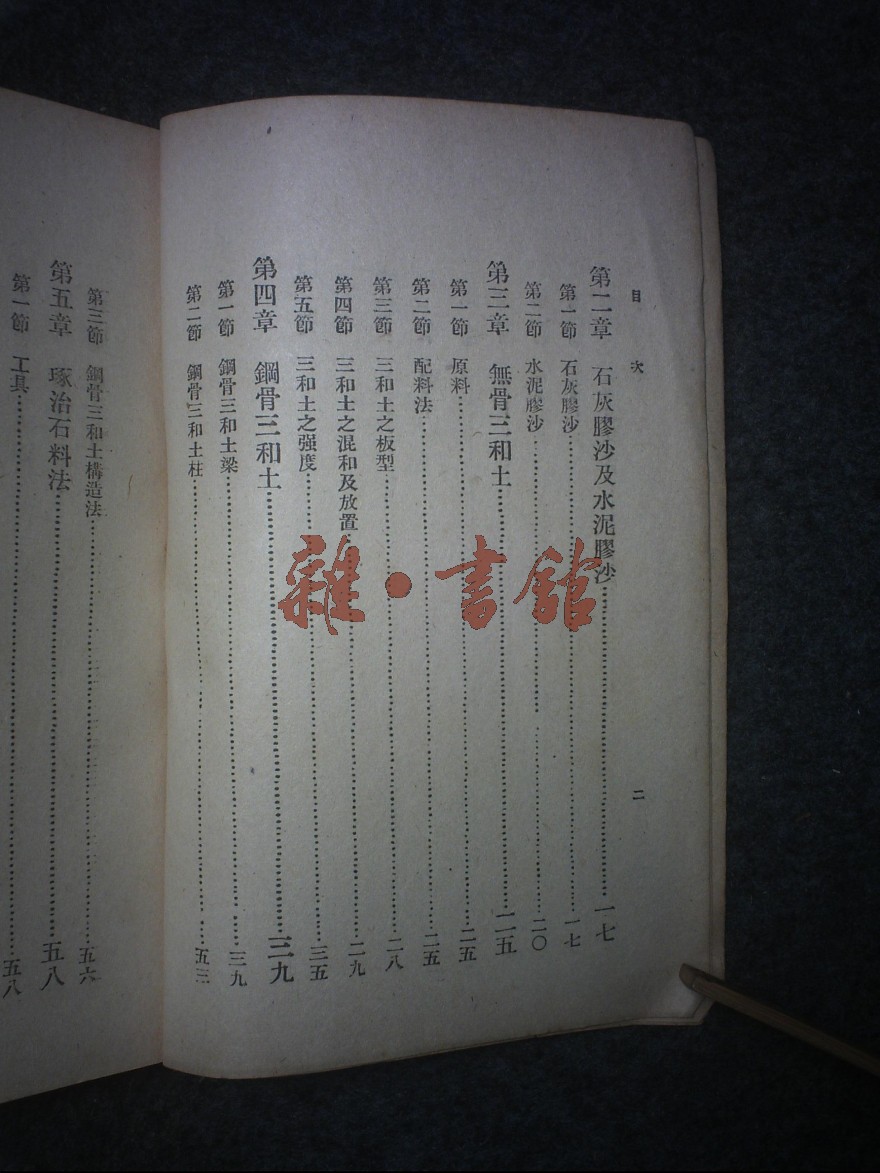 目次 二
第二章 石灰膠沙及水泥膠沙 一七
第一節 石灰膠沙 一七
第二節 水泥膠沙 二〇
第三章 無骨三和土 二五
第一節 原料 二五
第二節 配料法 二五
第三節 三和土之板型 二八
第四節 三和土之混和及放置 二九
第五節 三和土之强度 三五
第四章 鋼骨三和土 三九
第一節 鋼骨三和土梁 三九
第二節 鋼骨三和土柱 五三
第三節 鋼骨三和土構造法 五六
第五章 琢治石料法 五八
第一節 工具 五八
雜·書館